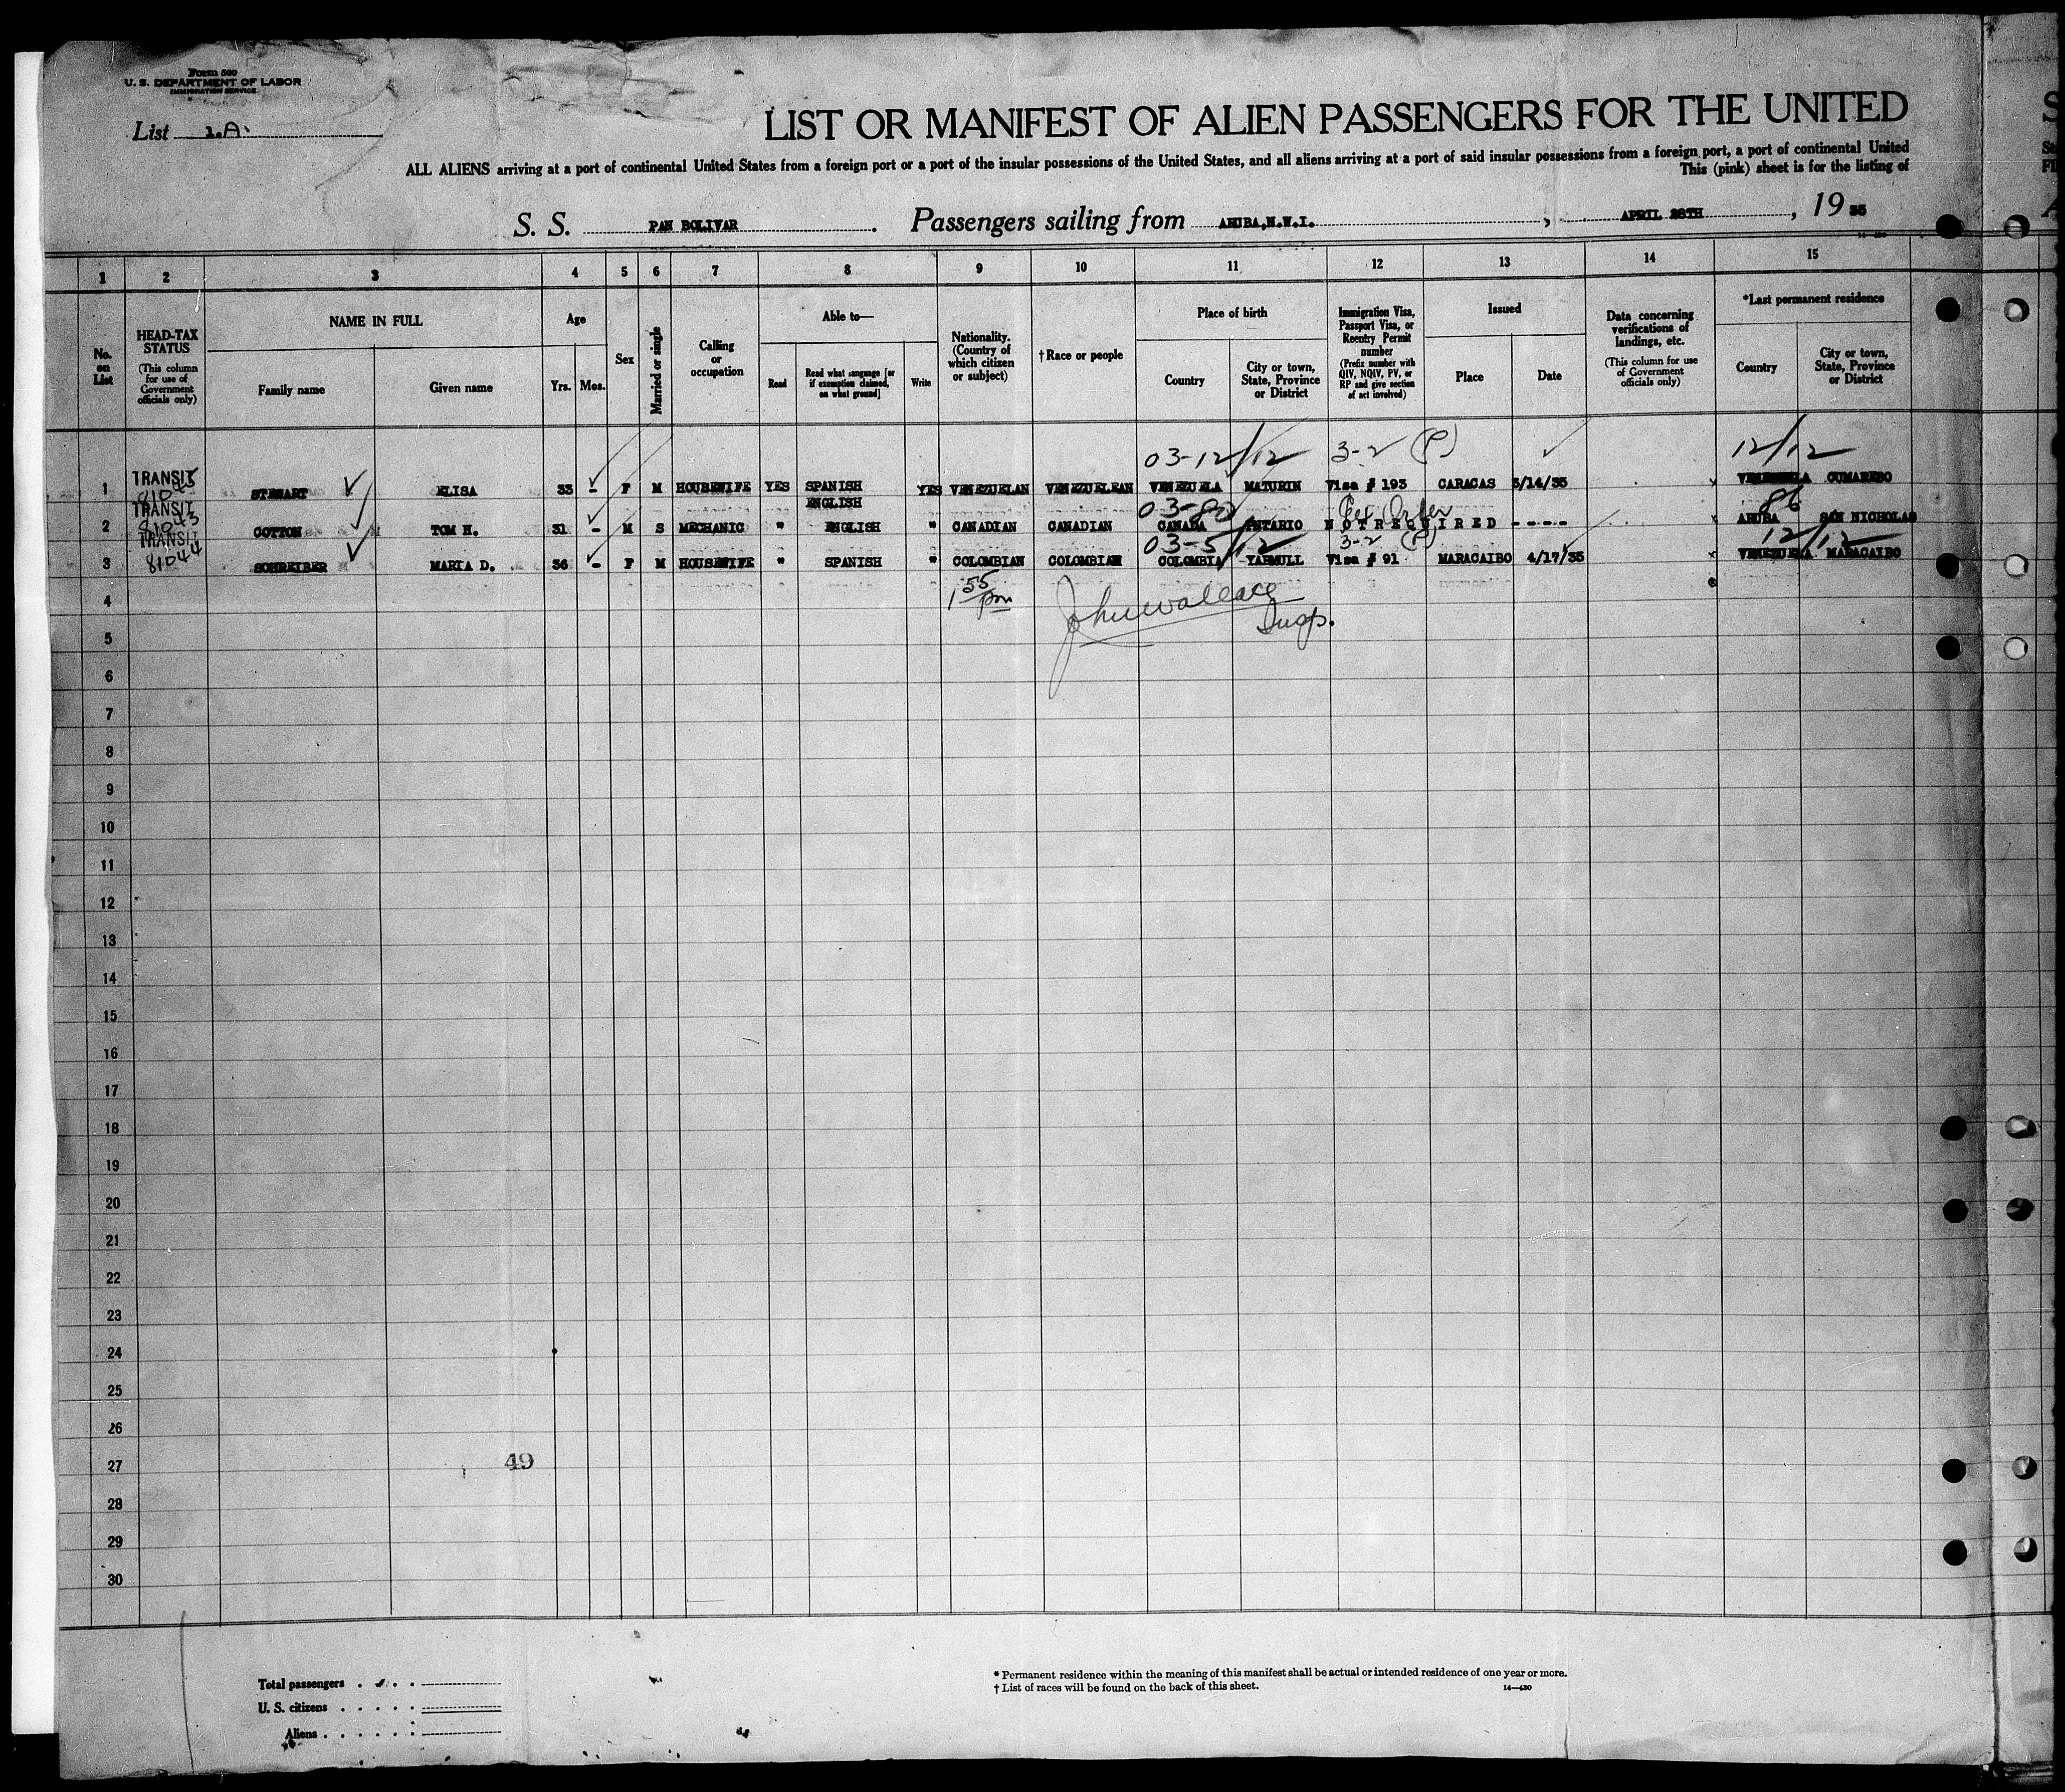 Form 500
U. S. DEPARTMENT OF LABOR
IMMIGRATION SERVICE
List 1.A.
LIST OR MANIFEST OF ALIEN PASSENGERS FOR THE UNITED
ALL ALIENS arriving at a port of continental United States from a foreign port or a port of the insular possessions of the United States, and all aliens arriving at a port of said insular possessions from a foreign port, a port of continental United
This (pink) sheet is for the listing of
S. S. PAN BOLIVAR. Passengers sailing from ARUBA,N.W.I., APRIL 28TH, 19 35
1 2 3 4 5 6 7 8 9 10 11 12 13 14 15
No. on List
HEAD-TAX STATUS
(This column for use of Government officials only)
NAME IN FULL
Family name
Given name
Age
Yrs. Mos.
Sex
Married or single
Calling or occupation
Able to—
Read
Read what language [or if exemption claimed, on what ground]
Write
Nationality. (Country of which citizen or subject)
†Race or people
Place of birth
Country
City or town, State, Province or District
Immigration Visa, Passport Visa, or Reentry Permit number
(Prefix number with QIV, NQIV, PV, or RP and give section of act involved)
Issued
Place
Date
Data concerning verifications of landings, etc.
(This column for use of Government officials only)
*Last permanent residence
Country
City or town, State, Province or District
03-12/12 3-2 (P) 12/12
1 TRANSIT STEWART ELISA 33 - F M HOUSEWIFE YES SPANISH YES VENEZUELAN VENEZUELEAN VENEZUELA MATURIN Visa # 193 CARACAS 3/14/35 VENEZUELA CUMAREBO
ENGLISH 03-82 Ex Order 86
2 TRANSIT 81043 COTTON TOM H. 31 - M S MECHANIC " ENGLISH " CANADIAN CANADIAN CANADA ONTARIO N O T R E Q U I R E D - - - - ARUBA SAN NICHOLAS
03-5/12 3-2 (P) 12/12
3 TRANSIT 81044 SCHREIBER MARIA D. 36 - F M HOUSEWIFE " SPANISH " COLOMBIAN COLOMBIAN COLOMBIA YARMULL Visa # 91 MARACAIBO 4/17/35 VENEZUELA MARACAIBO
1 55 pm John Wallace Insp.
4
5
6
7
8
9
10
11
12
13
14
15
16
17
18
19
20
21
22
23
24
25
26
27
49
28
29
30
Total passengers
U. S. citizens
Aliens
* Permanent residence within the meaning of this manifest shall be actual or intended residence of one year or more.
† List of races will be found on the back of this sheet.
14—430